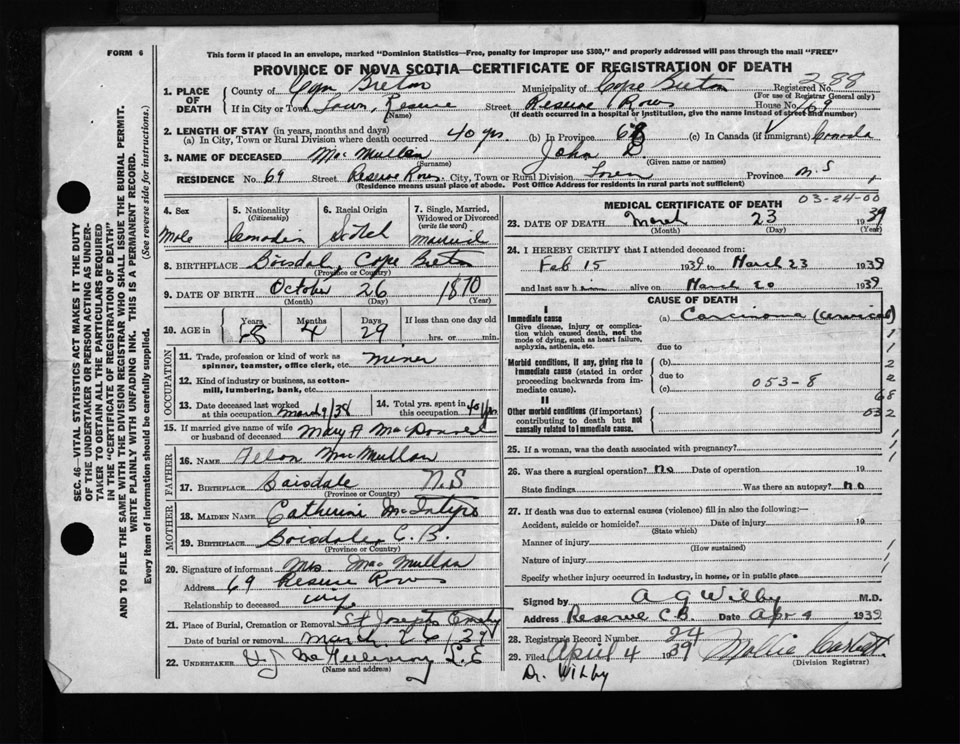 FORM 6
This form if placed in an envelope, marked "Dominion Statistics—Free, penalty for improper use $300," and properly addressed will pass through the mail "FREE"
PROVINCE OF NOVA SCOTIA—CERTIFICATE OF REGISTRATION OF DEATH
SEC. 46—VITAL STATISTICS ACT MAKES IT THE DUTY
OF THE UNDERTAKER OR PERSON ACTING AS UNDER-
TAKER TO OBTAIN ALL THE PARTICULARS REQUIRED
IN THE "CERTIFICATE OF REGISTRATION OF DEATH"
AND TO FILE THE SAME WITH THE DIVISION REGISTRAR WHO SHALL ISSUE THE BURIAL PERMIT.
WRITE PLAINLY WITH UNFADING INK. THIS IS A PERMANENT RECORD.
Every item of information should be carefully supplied. (See reverse side for instructions.)
1. PLACE OF DEATH County of Cape Breton Municipality of Cape Breton Registered No. 288
(For use of Registrar General only)
If in City or Town Town, Reserve Street Reserve Rows House No. 69
(Name) (If death occurred in a hospital or institution, give the name instead of street and number)
2. LENGTH OF STAY (in years, months and days)
(a) In City, Town or Rural Division where death occurred 40 yrs. (b) In Province 68 (c) In Canada (if immigrant) Canada
3. NAME OF DECEASED MacMullan John D
(Surname) (Given name or names)
RESIDENCE No. 69 Street Reserve Rows City, Town or Rural Division Town Province N.S
(Residence means usual place of abode. Post Office Address for residents in rural parts not sufficient)
4. Sex 5. Nationality 6. Racial Origin 7. Single, Married, Widowed or Divorced
(Citizenship) (write the word)
Male Canadian Scotch Married
8. BIRTHPLACE Boisdale, Cape Breton
(Province or Country)
9. DATE OF BIRTH October 26 1870
(Month) (Day) (Year)
10. AGE in Years Months Days If less than one day old
68 4 29 hrs. or min.
OCCUPATION
11. Trade, profession or kind of work as spinner, teamster, office clerk, etc. miner
12. Kind of industry or business, as cotton-mill, lumbering, bank, etc.
13. Date deceased last worked at this occupation March 9/38 14. Total yrs. spent in this occupation 40 yrs
15. If married give name of wife or husband of deceased Mary A MacDonald
FATHER
16. Name MacMullan
17. Birthplace Boisdale N.S
(Province or Country)
MOTHER
18. Maiden Name Catherine McIntyre
19. Birthplace Boisdale, C.B.
(Province or Country)
20. Signature of informant Mrs. MacMullan
Address 69 Reserve Rows
Relationship to deceased wife
21. Place of Burial, Cremation or Removal St Josephs Cemetery
Date of burial or removal March 26/39
22. UNDERTAKER
(Name and address)
MEDICAL CERTIFICATE OF DEATH 03-24-00
23. DATE OF DEATH March 23 1939
(Month) (Day) (Year)
24. I HEREBY CERTIFY that I attended deceased from:
Feb 15 1939 to March 23 1939
and last saw him alive on March 20 1939
CAUSE OF DEATH
Immediate cause (a) Carcinoma (cervical)
Give disease, injury or complication which caused death, not the mode of dying, such as heart failure, asphyxia, asthenia, etc.
due to
Morbid conditions, if any, giving rise to immediate cause (stated in order proceeding backwards from immediate cause). (b)
due to 053-8
(c)
II
Other morbid conditions (if important) contributing to death but not causally related to immediate cause.
1
1
2
2
68
032
25. If a woman, was the death associated with pregnancy?
26. Was there a surgical operation? No Date of operation 19
State findings Was there an autopsy? No
27. If death was due to external causes (violence) fill in also the following:—
Accident, suicide or homicide? Date of injury 19
(State which)
Manner of injury
(How sustained)
Nature of injury
Specify whether injury occurred in industry, in home, or in public place
Signed by A G Wilby M.D.
Address Reserve C.B. Date Apr 4 1939
28. Registrar's Record Number 24
29. Filed April 4 1939 Mollie
(Division Registrar)
Dr. Wilby